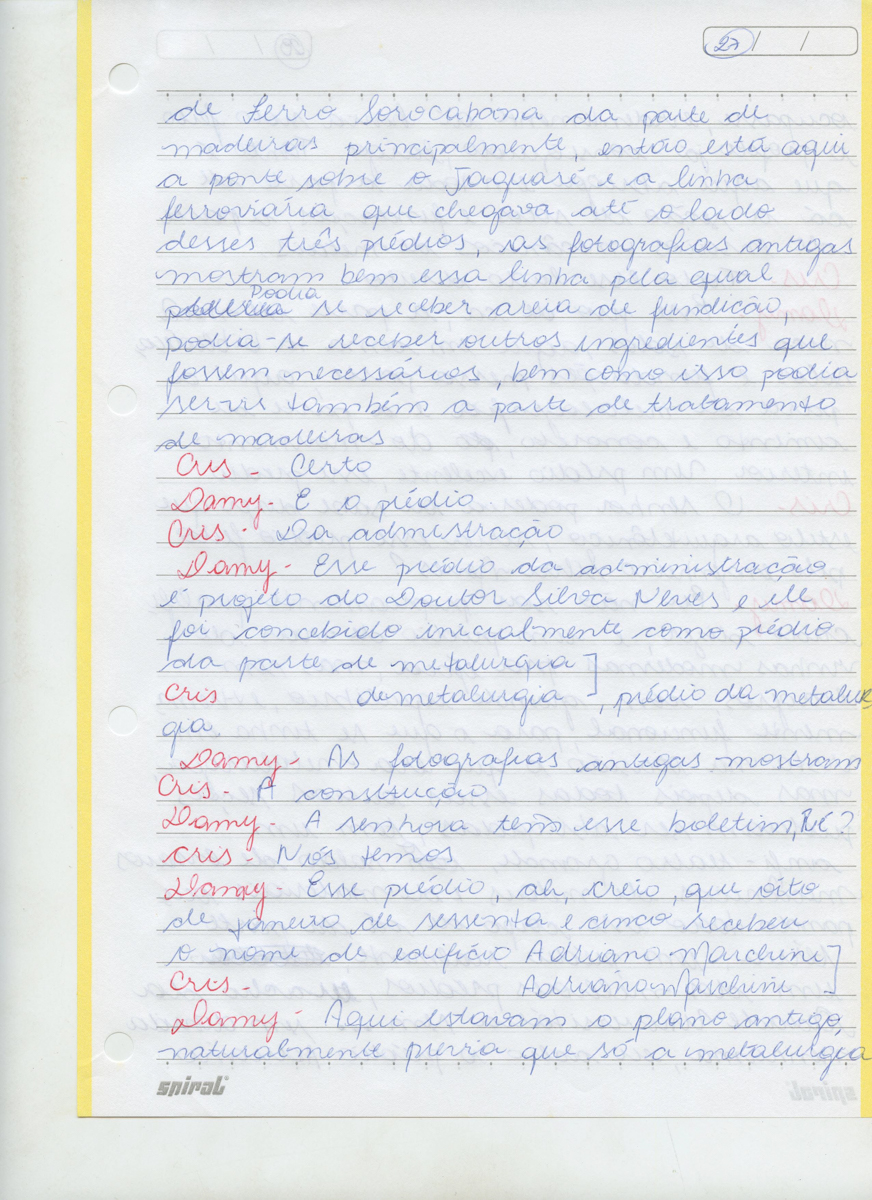 27 / /
de Ferro Sorocabana da parte de
madeiras principalmente, então está aqui
a ponte sobre o Jaguaré e a linha
ferroviária que chegava até o lado
desses três prédios, as fotografias antigas
mostram bem essa linha pela qual
Podia
se receber areia de fundição,
podia-se receber outros ingredientes que
fossem necessários, bem como isso podia
servir também a parte de tratamento
de madeiras
Cris - Certo
Damy - E o prédio.
Cris - Da admistração
Damy - Esse prédio da administração
é projeto do Doutor Silva Neves e ele
foi concebido inicialmente como prédio
da parte de metalurgia ]
Cris de metalurgia ], prédio da metalur
gia.
Damy - As fotografias antigas mostram
Cris - A construção
Damy - A senhora tem esse boletim, Né?
Cris - Nós temos
Damy - Esse prédio, ah, creio, que oito
de janeiro de sessenta e cinco recebeu
o nome de edifício Adriano Marchini ]
Cris - Adriano Marchini ]
Damy - Aqui estavam o plano antigo,
naturalmente previa que só a metalurgia
spiral